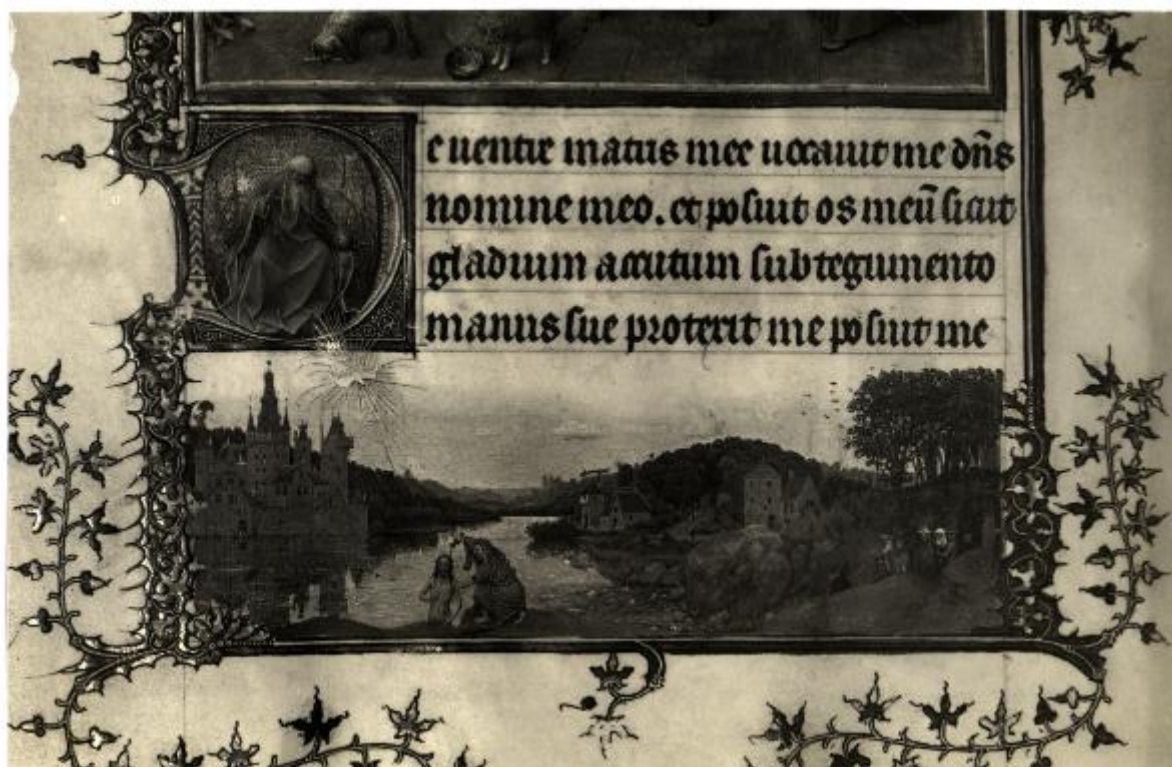 De uentre matris mee uocauit me dñs
nomine meo. et posuit os meũ sicut
gladium accutum sub tegumento
manus sue protexit me posuit me